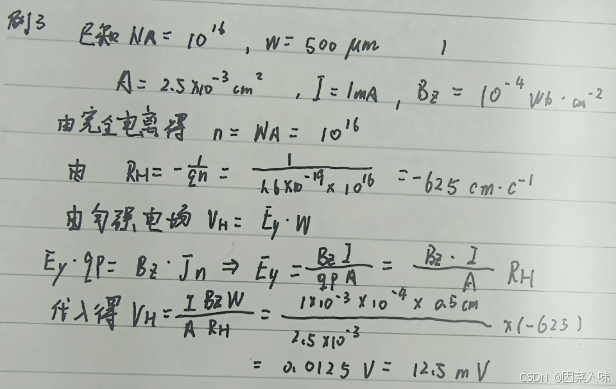 例3 已知 NA = 10^16 , W = 500 μm
A = 2.5×10^-3 cm^2 , I = 1mA , Bz = 10^-4 Wb·cm^-2
由完全电离得 n = NA = 10^16
由 RH = -1/qn = 1/(1.6×10^-19 × 10^16) = -625 cm·c^-1
由匀强电场 VH = Ey·W
Ey·qP = Bz·Jn ⇒ Ey = BzI/qPA = Bz·I/A RH
代入得 VH = I Bz W/A RH = 1×10^-3 × 10^-4 × 0.5cm/2.5×10^-3 ×(-625)
= 0.0125 V = 12.5 mV
CSDN @因菜入味